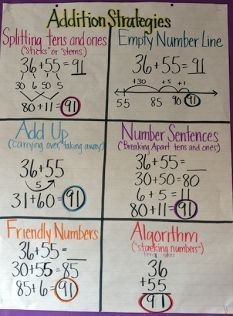 Addition Strategies
Splitting tens and ones
("sticks" or "stems")
36+55=91
30 6 50 5
80+11=91
Empty Number Line
36+55=91
+30 +5 +1
55 85 90 91
Add Up
(carrying over, taking away)
36+55
5
31+60=91
Number Sentences
(Breaking Apart tens and ones)
36+55=
30+50=80
6+5=11
80+11=91
Friendly Numbers
36+55=
30+55=85
85+6=91
Algorithm
("stacking numbers")
36
+55
91